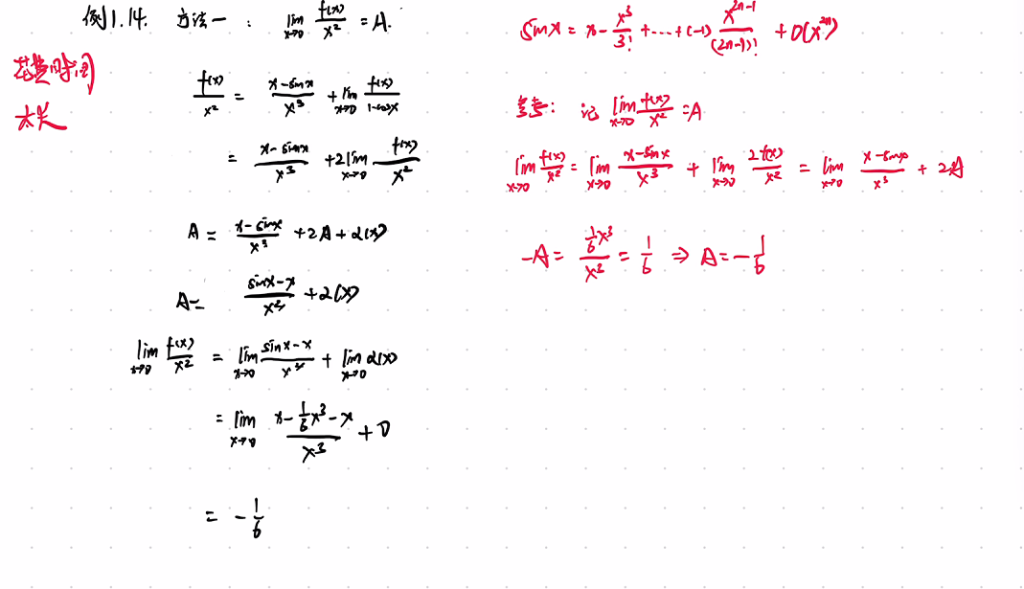 例1.14. 方法一: lim_{x→0} f(x)/x² = A.
花费时间
太长
f(x)/x² = (x-sinx)/x³ + lim_{x→0} f(x)/(1-cosx)
= (x-sinx)/x³ + 2lim_{x→0} f(x)/x²
A = (x-sinx)/x³ + 2A + α(x)
A = (sinx-x)/x³ + α(x)
lim_{x→0} f(x)/x² = lim_{x→0} (sinx-x)/x³ + lim_{x→0} α(x)
= lim_{x→0} (x-1/6x³-x)/x³ + 0
= -1/6
sinx = x - x³/3! + … + (-1) x^{2n-1}/(2n-1)! + o(x^{2n})
参考: 记 lim_{x→0} f(x)/x² = A
lim_{x→0} f(x)/x² = lim_{x→0} (x-sinx)/x³ + lim_{x→0} 2f(x)/x² = lim_{x→0} (x-sinx)/x³ + 2A
-A = (1/6x³)/x³ = 1/6 ⇒ A = -1/6